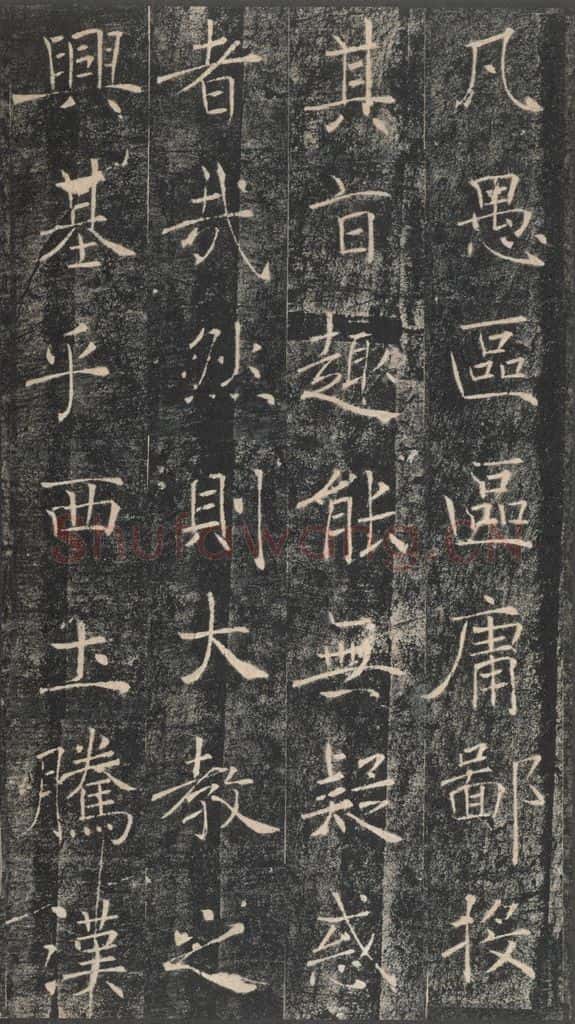 凡愚區區庸鄙投
其旨趣能無疑惑
者哉然則大教之
興基乎西土騰漢
shufawang.cn